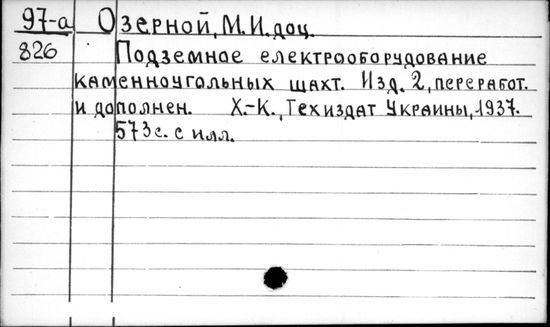 97-а Озерной, М.И. доц.
826
Подземное електрооборудование
каменноугольных шахт. Изд. 2, переработ.
и дополнен. Х.-К., Техиздат Украины, 1937.
573с. с илл.